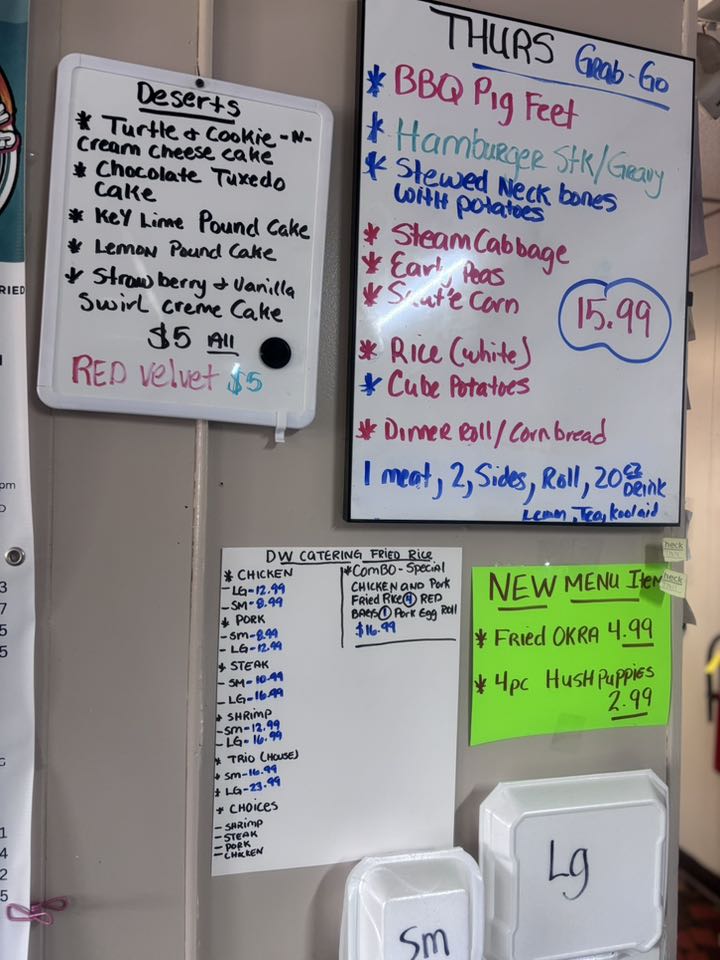 Deserts
* Turtle & Cookie-N-
cream cheese cake
* Chocolate Tuxedo
Cake
* Key Lime Pound Cake
* Lemon Pound Cake
* Strawberry & Vanilla
Swirl creme Cake
$5 All
RED velvet $5
THURS Grab-Go
* BBQ Pig Feet
* Hamburger Stk/Gravy
* Stewed Neck bones
with potatoes
* Steam Cabbage
* Early Peas
* Saut'e Corn
15.99
* Rice (white)
* Cube Potatoes
* Dinner Roll/Cornbread
1 meat, 2, Sides, Roll, 20 oz Drink
Lemon, Tea, koolaid
DW CATERING FRIED RICE
* CHICKEN
- LG-12.99
- SM-8.99
* PORK
- SM-8.99
- LG-12.99
* STEAK
- SM-10.99
- LG-16.99
* SHRIMP
- SM-12.99
- LG-16.99
* TRIO (HOUSE)
* SM-16.99
* LG-23.99
* CHOICES
- SHRIMP
- STEAK
- PORK
- CHICKEN
* COMBO - Special
CHICKEN and Pork
Fried Rice 4 RED
1 Pork Egg Roll
$16.99
NEW MENU Item
* Fried OKRA 4.99
* 4pc Hush Puppies
2.99
heck
heck
Sm
Lg
RIED
pm